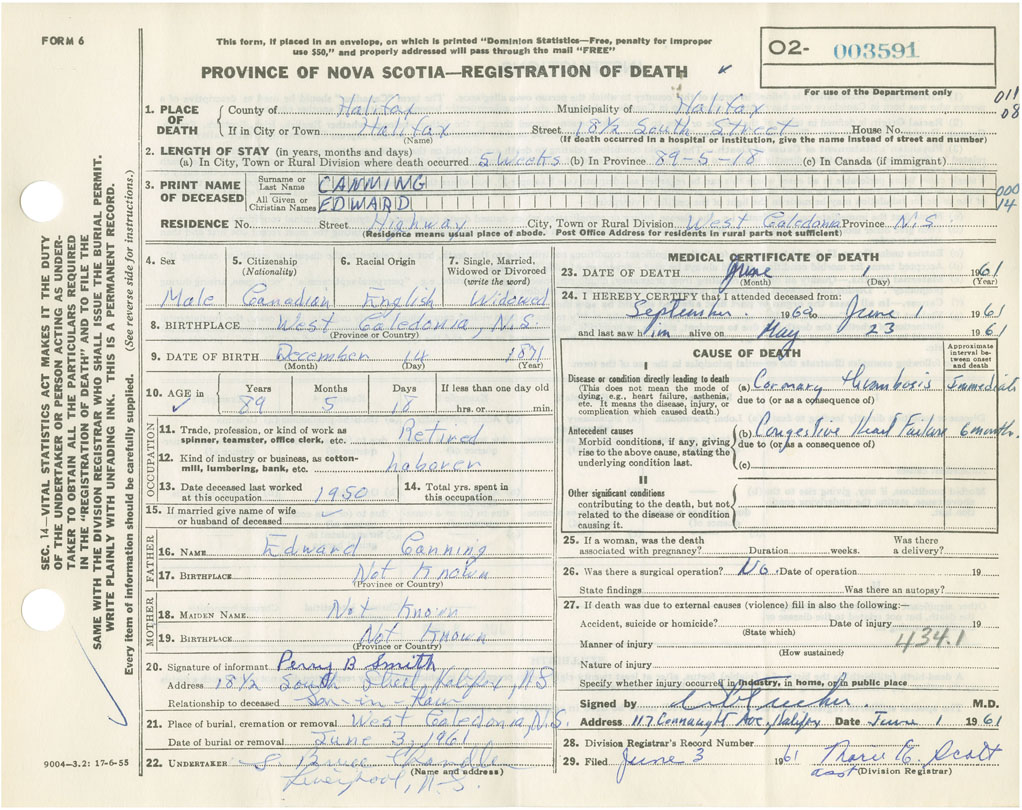 FORM 6
This form, if placed in an envelope, on which is printed "Dominion Statistics—Free, penalty for improper
use $50," and properly addressed will pass through the mail "FREE"
PROVINCE OF NOVA SCOTIA—REGISTRATION OF DEATH
02- 003591
For use of the Department only
011
08
1. PLACE OF DEATH
County of Halifax Municipality of Halifax
If in City or Town Halifax Street 18½ South Street House No.
(Name) (If death occurred in a hospital or institution, give the name instead of street and number)
2. LENGTH OF STAY (in years, months and days)
(a) In City, Town or Rural Division where death occurred 5 Weeks (b) In Province 89-5-18 (c) In Canada (if immigrant)
3. PRINT NAME OF DECEASED
Surname or Last Name CANNING
All Given or Christian Names EDWARD
000
14
RESIDENCE No. Street Highway City, Town or Rural Division West Caledonia Province N.S
(Residence means usual place of abode. Post Office Address for residents in rural parts not sufficient)
4. Sex Male
5. Citizenship (Nationality) Canadian
6. Racial Origin English
7. Single, Married, Widowed or Divorced (write the word) Widowed
8. BIRTHPLACE West Caledonia, N.S.
(Province or Country)
9. DATE OF BIRTH December 14 1871
(Month) (Day) (Year)
10. AGE in Years 89 Months 5 Days 18 If less than one day old hrs. or min.
OCCUPATION
11. Trade, profession, or kind of work as spinner, teamster, office clerk, etc. Retired
12. Kind of industry or business, as cotton-mill, lumbering, bank, etc. Laborer
13. Date deceased last worked at this occupation 1950
14. Total yrs. spent in this occupation
15. If married give name of wife or husband of deceased
FATHER
16. NAME Edward Canning
17. BIRTHPLACE Not Known
(Province or Country)
MOTHER
18. MAIDEN NAME Not Known
19. BIRTHPLACE Not Known
(Province or Country)
20. Signature of informant Perry B Smith
Address 18½ South Street, Halifax, N.S
Relationship to deceased Son-in-Law
21. Place of burial, cremation or removal West Caledonia, N.S.
Date of burial or removal June 3, 1961
22. UNDERTAKER S Bruce Chandler
(Name and address)
Liverpool, N.S.
9004—3.2: 17-6-55
MEDICAL CERTIFICATE OF DEATH
23. DATE OF DEATH June 1 1961
(Month) (Day) (Year)
24. I HEREBY CERTIFY that I attended deceased from:
September 1960 June 1 1961
and last saw him alive on May 23 1961
CAUSE OF DEATH
Approximate interval between onset and death
I
Disease or condition directly leading to death
(This does not mean the mode of dying, e.g., heart failure, asthenia, etc. It means the disease, injury, or complication which caused death.)
(a) Coronary thrombosis Immediate
due to (or as a consequence of)
Antecedent causes
Morbid conditions, if any, giving rise to the above cause, stating the underlying condition last.
(b) Congestive Heart Failure 6 months.
due to (or as a consequence of)
(c)
II
Other significant conditions
contributing to the death, but not related to the disease or condition causing it.
25. If a woman, was the death associated with pregnancy? Duration weeks. Was there a delivery?
26. Was there a surgical operation? No. Date of operation 19
State findings Was there an autopsy?
27. If death was due to external causes (violence) fill in also the following:—
Accident, suicide or homicide? Date of injury 19
(State which)
434.1
Manner of injury
(How sustained)
Nature of injury
Specify whether injury occurred in industry, in home, or in public place
Signed by M.D.
Address 117 Connaught Ave., Halifax Date June 1 1961
28. Division Registrar's Record Number
29. Filed June 3 1961 Marie E. Scott
asst (Division Registrar)
SEC. 14—VITAL STATISTICS ACT MAKES IT THE DUTY
OF THE UNDERTAKER OR PERSON ACTING AS UNDER-
TAKER TO OBTAIN ALL THE PARTICULARS REQUIRED
IN THE "REGISTRATION OF DEATH" AND TO FILE THE
SAME WITH THE DIVISION REGISTRAR WHO SHALL ISSUE THE BURIAL PERMIT.
WRITE PLAINLY WITH UNFADING INK. THIS IS A PERMANENT RECORD.
Every item of information should be carefully supplied. (See reverse side for instructions.)